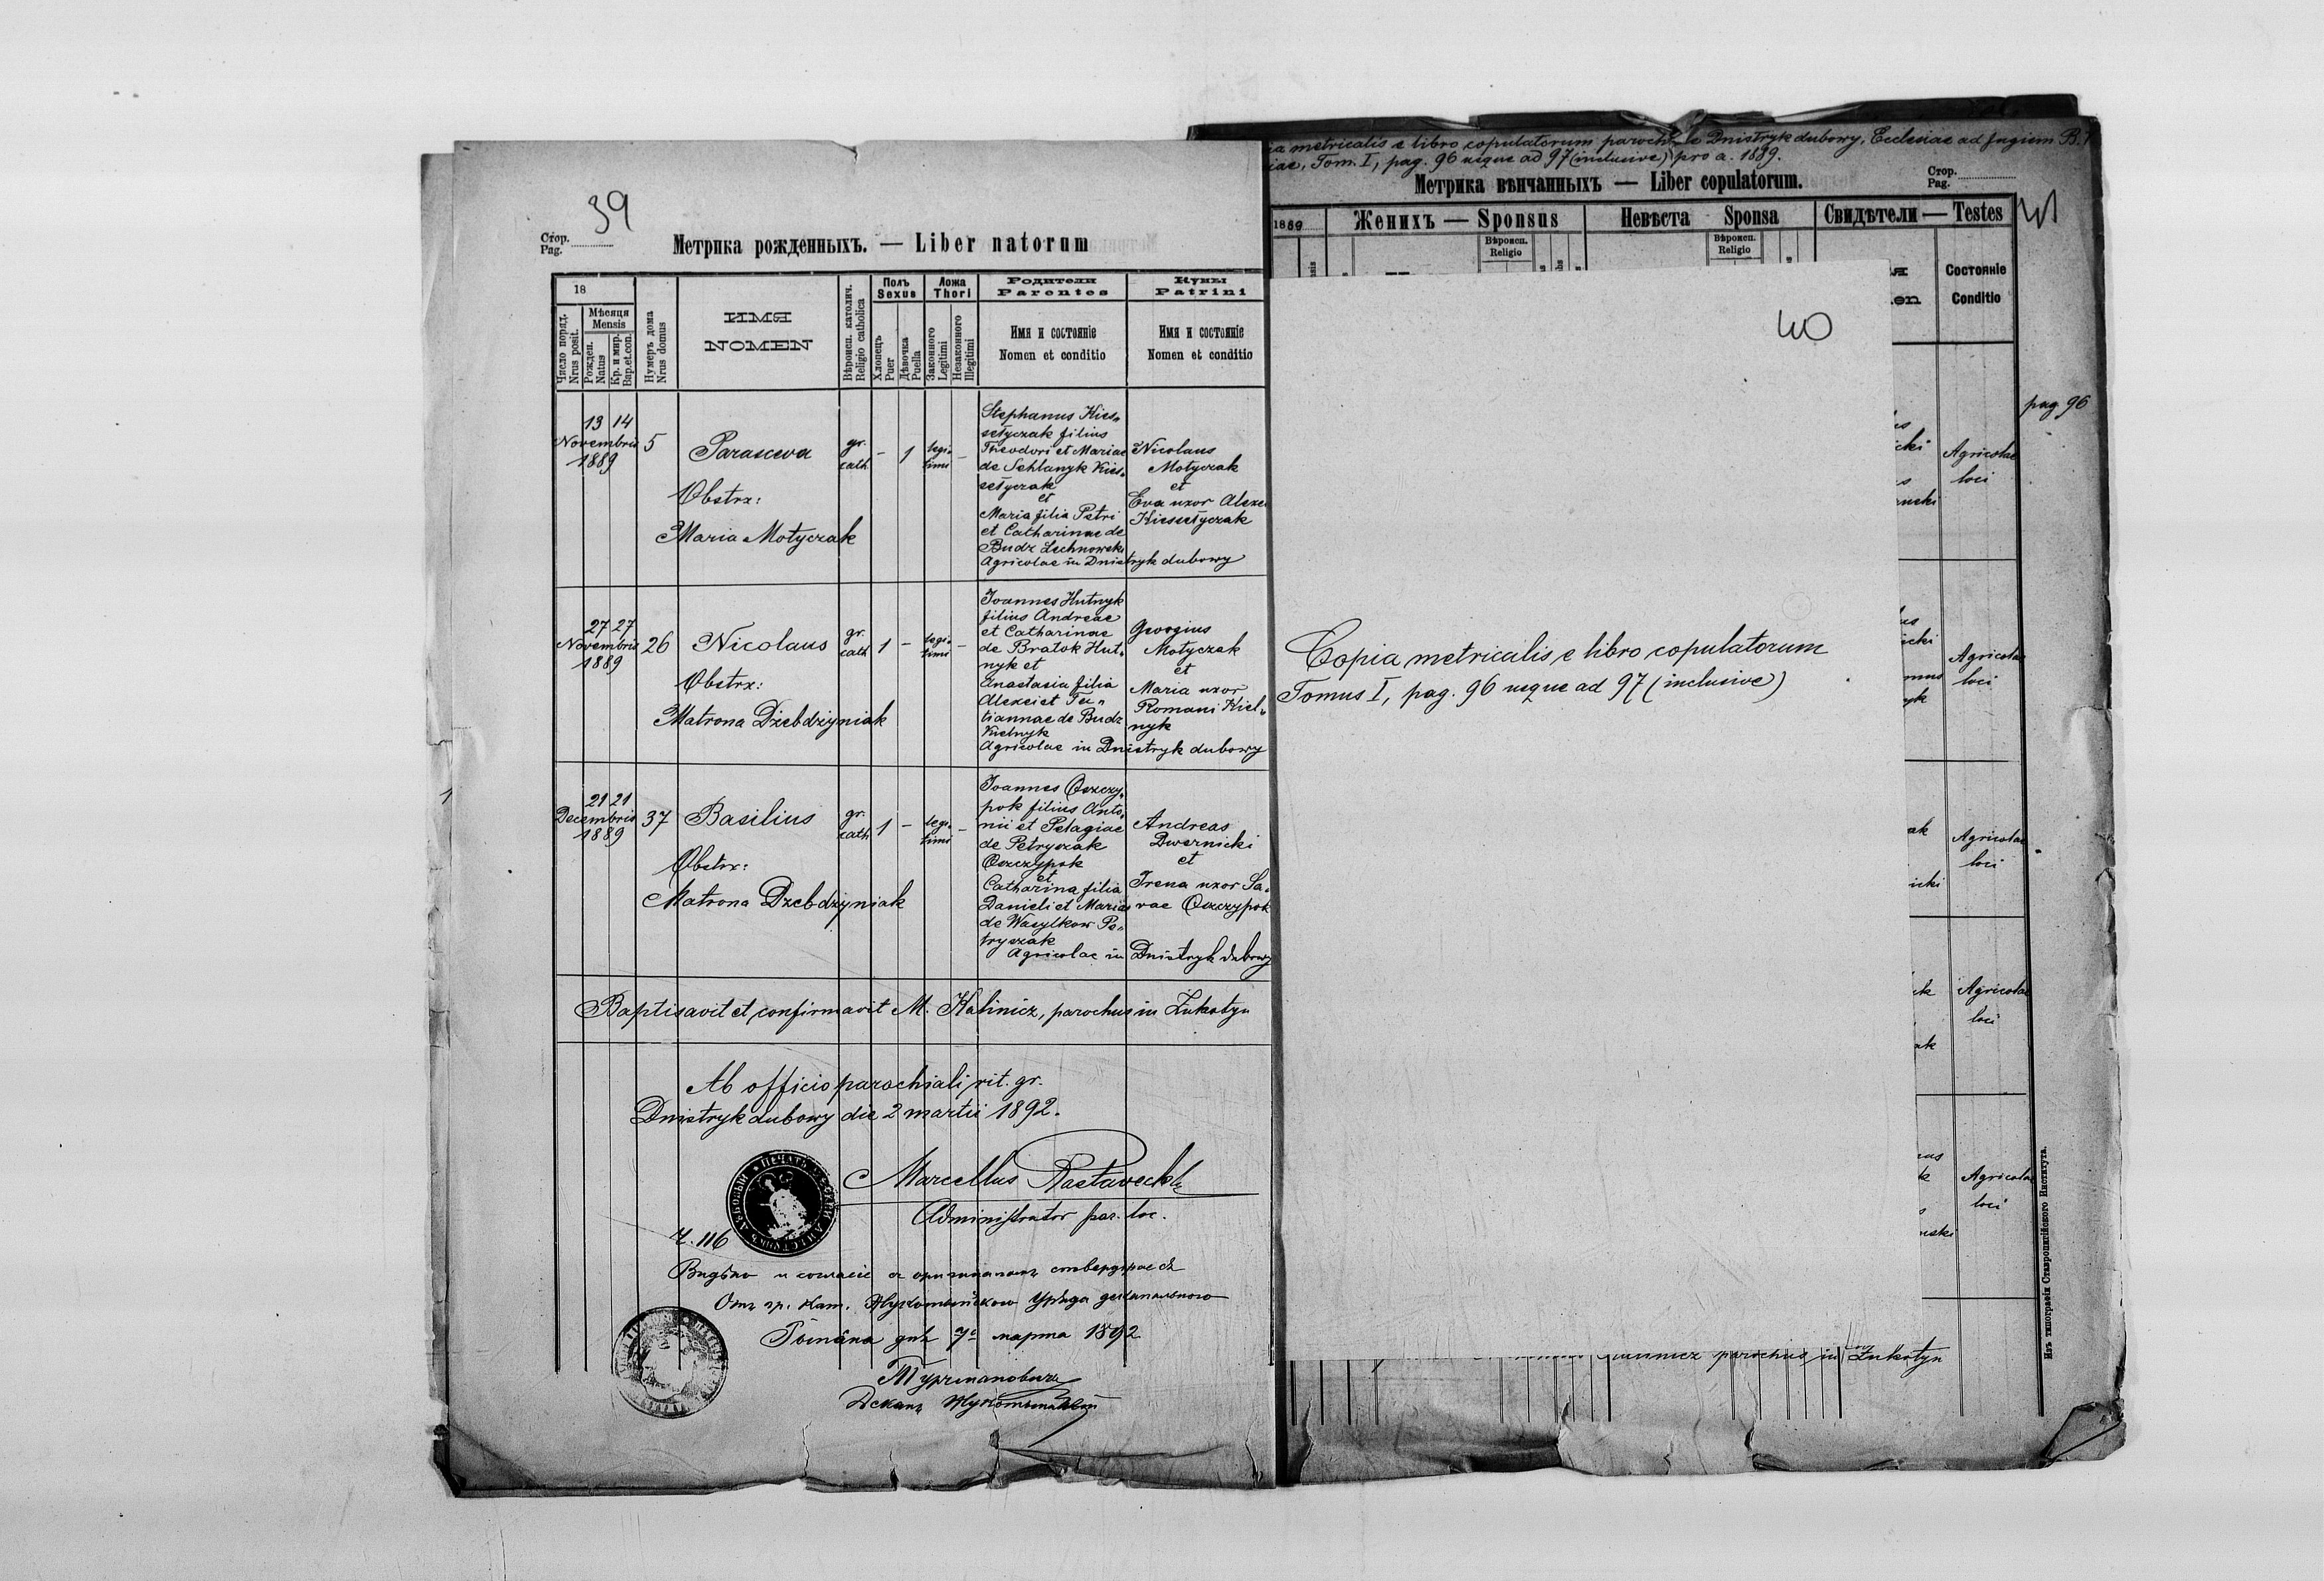 39
Стор.
Pag.
Метрика рожденныхъ. — Liber natorum
18
Число поряд.
Nrus posit.
Мѣсяця
Mensis
Рожден.
Natus
Кр. и мир.
Bap. et con.
Нумеръ дома
Nrus domus
ИМЯ
NOMEN
Вѣроисп. католич.
Religio catholica
Полъ
Sexus
Хлопецъ
Puer
Дѣвочка
Puella
Ложа
Thori
Законного
Legitimi
Незаконного
Illegitimi
Родители
Parentes
Имя и состояніе
Nomen et conditio
Кумы
Patrini
Имя и состояніе
Nomen et conditio
13 14
Novembris
1889
5
Parasceva
Obstrx:
Maria Motyczak
gr.
cath.
-
1
legi-
timi
-
Stephanus Kies„
setyczak filius
Theodori et Mariae
de Sehlanyk Kies„
setyczak
et
Maria filia Petri
et Catharinae de
Budz Lechnowski
Agricolae in Dnistryk dubowy
Nicolaus
Motyczak
et
Eva uxor Alexei
Kiessetyczak
27 27
Novembris
1889
26
Nicolaus
Obstrx:
Matrona Dżebdżyniak
gr.
cath
1
-
legi-
timi
-
Joannes Hutnyk
filius Andreae
et Catharinae
de Bratok Hut„
nyk et
Anastasia filia
Alexei et Ta„
tiannae de Budz
Kielnyk
Agricolae in Dnistryk dubowy
Georgius
Motyczak
et
Maria uxor
Romani Kiel„
nyk
21 21
Decembris
1889
37
Basilius
Obstrx:
Matrona Dzebdzyniak
gr.
cath
1
-
legi-
timi
-
Joannes Oszczy„
pok filius Anto„
nii et Pelagiae
de Petryszak
Oszczypok
et
Catharina filia
Danieli et Mariae
de Wasylkow Pe„
tryszak
Agricolae in Dnistryk dubowy
Andreas
Dwernicki
et
Irena uxor Sa„
vae Oszczypok
Baptisavit et confirmavit M. Kalinicz, parochus in Żukotyn
Ab officio parochiali rit. gr.
Dnistryk dubowy die 2 martii 1892.
Marcellus
Administrator par. loc.
Ч. 116
Видѣно и согласіе съ оригиналомъ стверджае ся
Отъ гр. кат. Жукотыньского Уряда деканального
дня 7го марта 1892
Деканъ Жукотыньскій
ia metricalis e libro copulatorum Dnistryk dubowy, Ecclesiae ad B.
iae, Tom. I, pag. 96 usque ad 97 (inclusive) pro a. 1889.
Метрика вѣнчанныхъ — Liber copulatorum.
Стор.
Pag.
1889
Женихъ — Sponsus
Невѣста Sponsa
Свидѣтели — Testes
Вѣроисп.
Religio
Вѣроисп.
Religio
Состояніе
Conditio
40
pag 96
Agricolae
loci
Copia metricalis e libro copulatorum
Tomus I, pag. 96 usque ad 97 (inclusive)
Agricolae
loci
Agricolae
loci
Agricolae
loci
Agricolae
loci
parochus in Żukotyn
Изъ типографіи Ставропигійского Института.